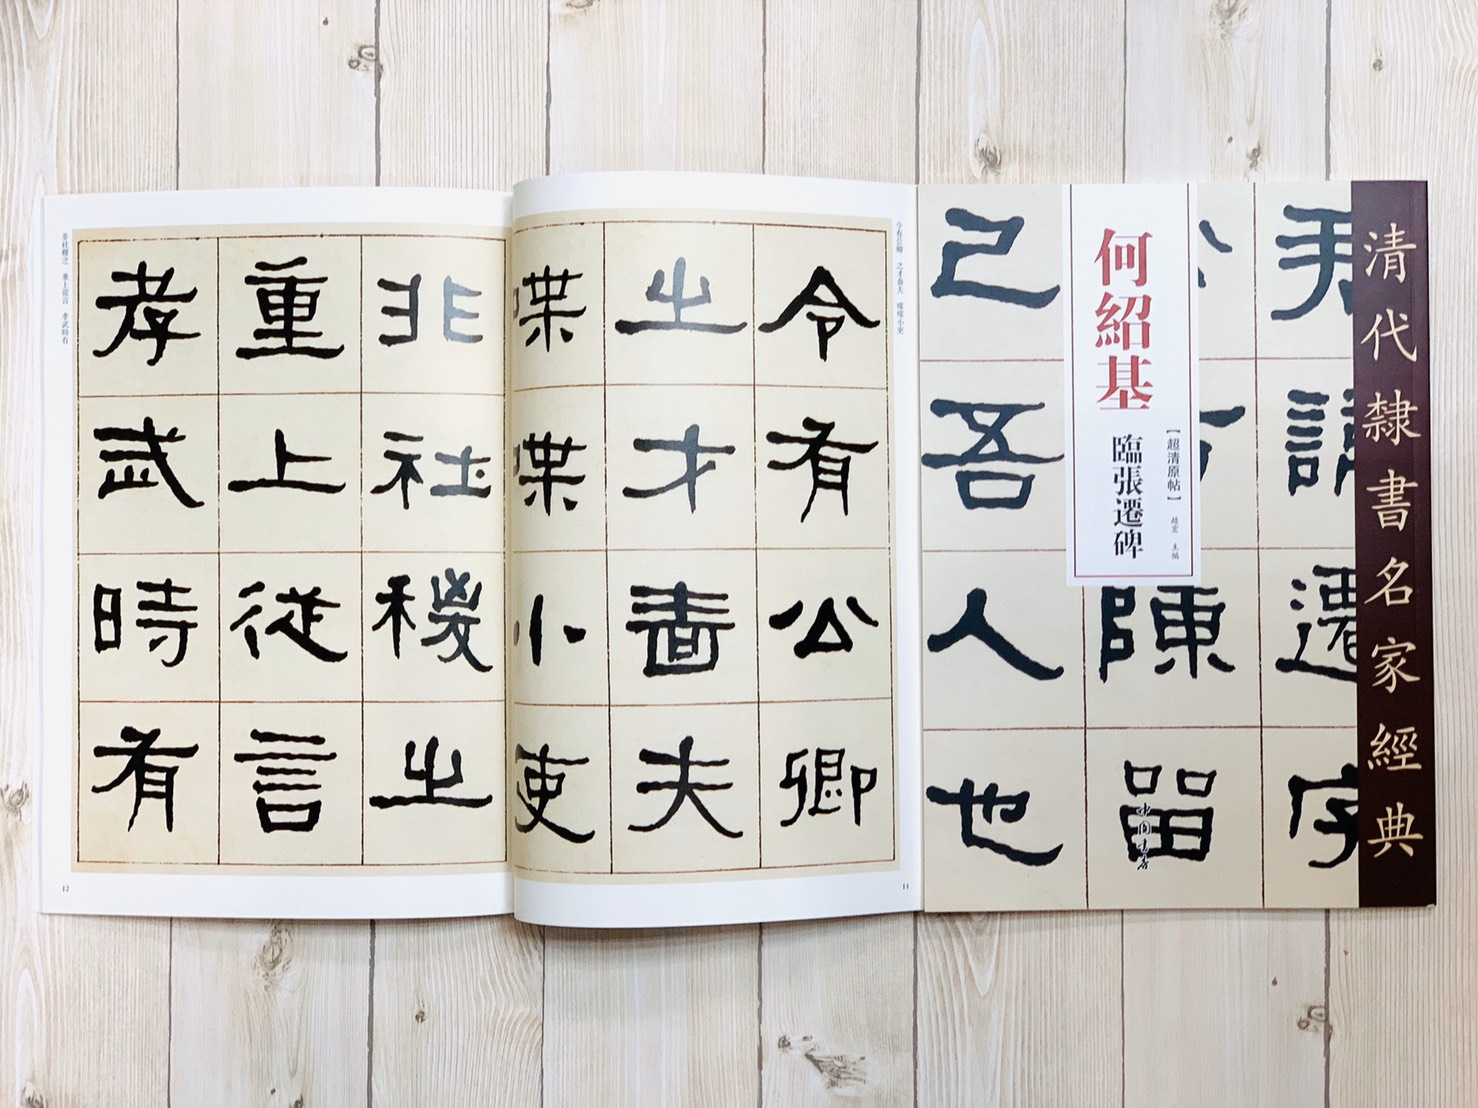 清代隸書名家經典
何紹基
臨張遷碑
【超清原帖】
趙宏 主編
中國書店
遷字
陳留
己吾人也
令有公卿 之才嗇夫 喋喋小吏
令有公卿
之才嗇夫
喋喋小吏
11
非社稷之
重上從言
孝武時有
非社稷之 重上從言 孝武時有
12